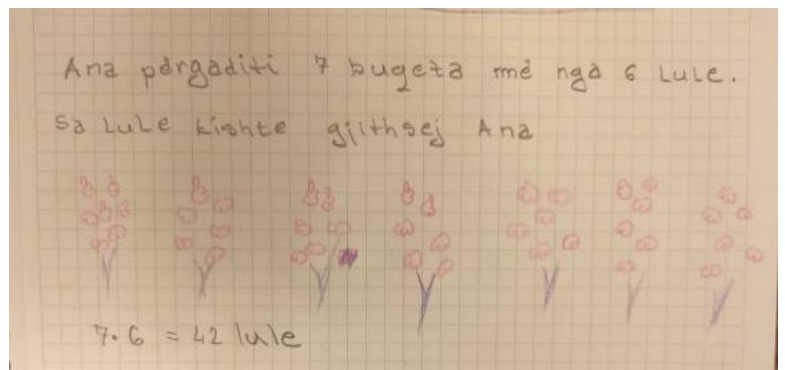 Ana përgaditi 7 buqeta me nga 6 Lule.
Sa Lule kishte gjithsej Ana
7·6 = 42 lule